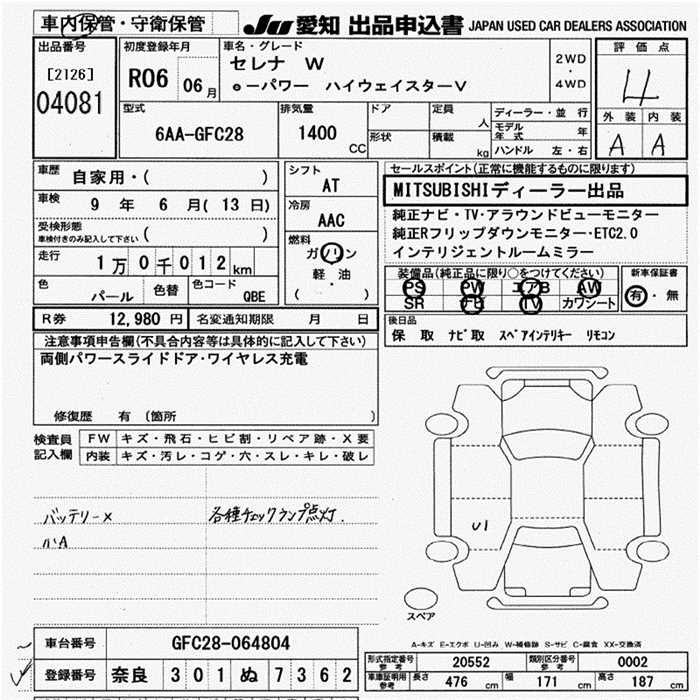 車内保管・守衛保管
JU 愛知 出品申込書 JAPAN USED CAR DEALERS ASSOCIATION
出品番号
[2126]
04081
初度登録年月
R06 06月
車名・グレード
セレナ W
e-パワー ハイウェイスターV
2WD
・
4WD
評価点
4
外装 内装
A A
型式
6AA-GFC28
排気量
1400
CC
ドア
形状
定員
人
積載
kg
ディーラー・並行
モデル年式 年
ハンドル 左・右
車歴
自家用・( )
車検
9 年 6 月( 13 日)
受検形態
車検付きのみ記入して下さい ( )
走行
1万0千012km
色
パール
色替
色コード
QBE
シフト
AT
冷房
AAC
燃料
ガソリン
軽・油
( )
セールスポイント(正常に機能するものに限ります)
MITSUBISHIディーラー出品
純正ナビ・TV・アラウンドビューモニター
純正Rフリップダウンモニター・ETC2.0
インテリジェントルームミラー
装備品(純正品に限り○をつけてください)
PS PW エアB AW
SR ナビ TV カワシート
新車保証書
有・無
R券 12,980 円 名変通知期限 月 日
後日品
保 取 ナビ取 スペアインテリキー リモコン
注意事項申告欄(不具合内容等は具体的に記入して下さい)
両側パワースライドドア・ワイヤレス充電
修復歴 有 (箇所 )
検査員
記入欄
FW キズ・飛石・ヒビ割・リペア跡・X要
内装 キズ・汚レ・コゲ・穴・スレ・キレ・破レ
バッテリーX 各種チェックランプ点灯.
小A
U1
スペア
A-キズ E-エクボ U-凹み W-補修跡 S-サビ C-腐食 XX-交換済
車台番号 GFC28-064804
登録番号 奈良 301 ぬ 7362
型式指定番号
参考
20552
類別区分番号
参考
0002
車庫証明用
参考
長さ 476 cm 幅 171 cm 高さ 187 cm